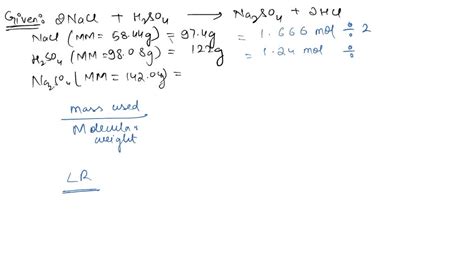 Given: 2NaCl + H₂SO₄ → Na₂SO₄ + 2HCl
NaCl (MM = 58.44g) = 97.4g = 1.666 mol ÷ 2
H₂SO₄ (MM = 98.08g) = 122g = 1.24 mol ÷
Na₂SO₄ (MM = 142.04) =
mass used
Molecular weight
LR